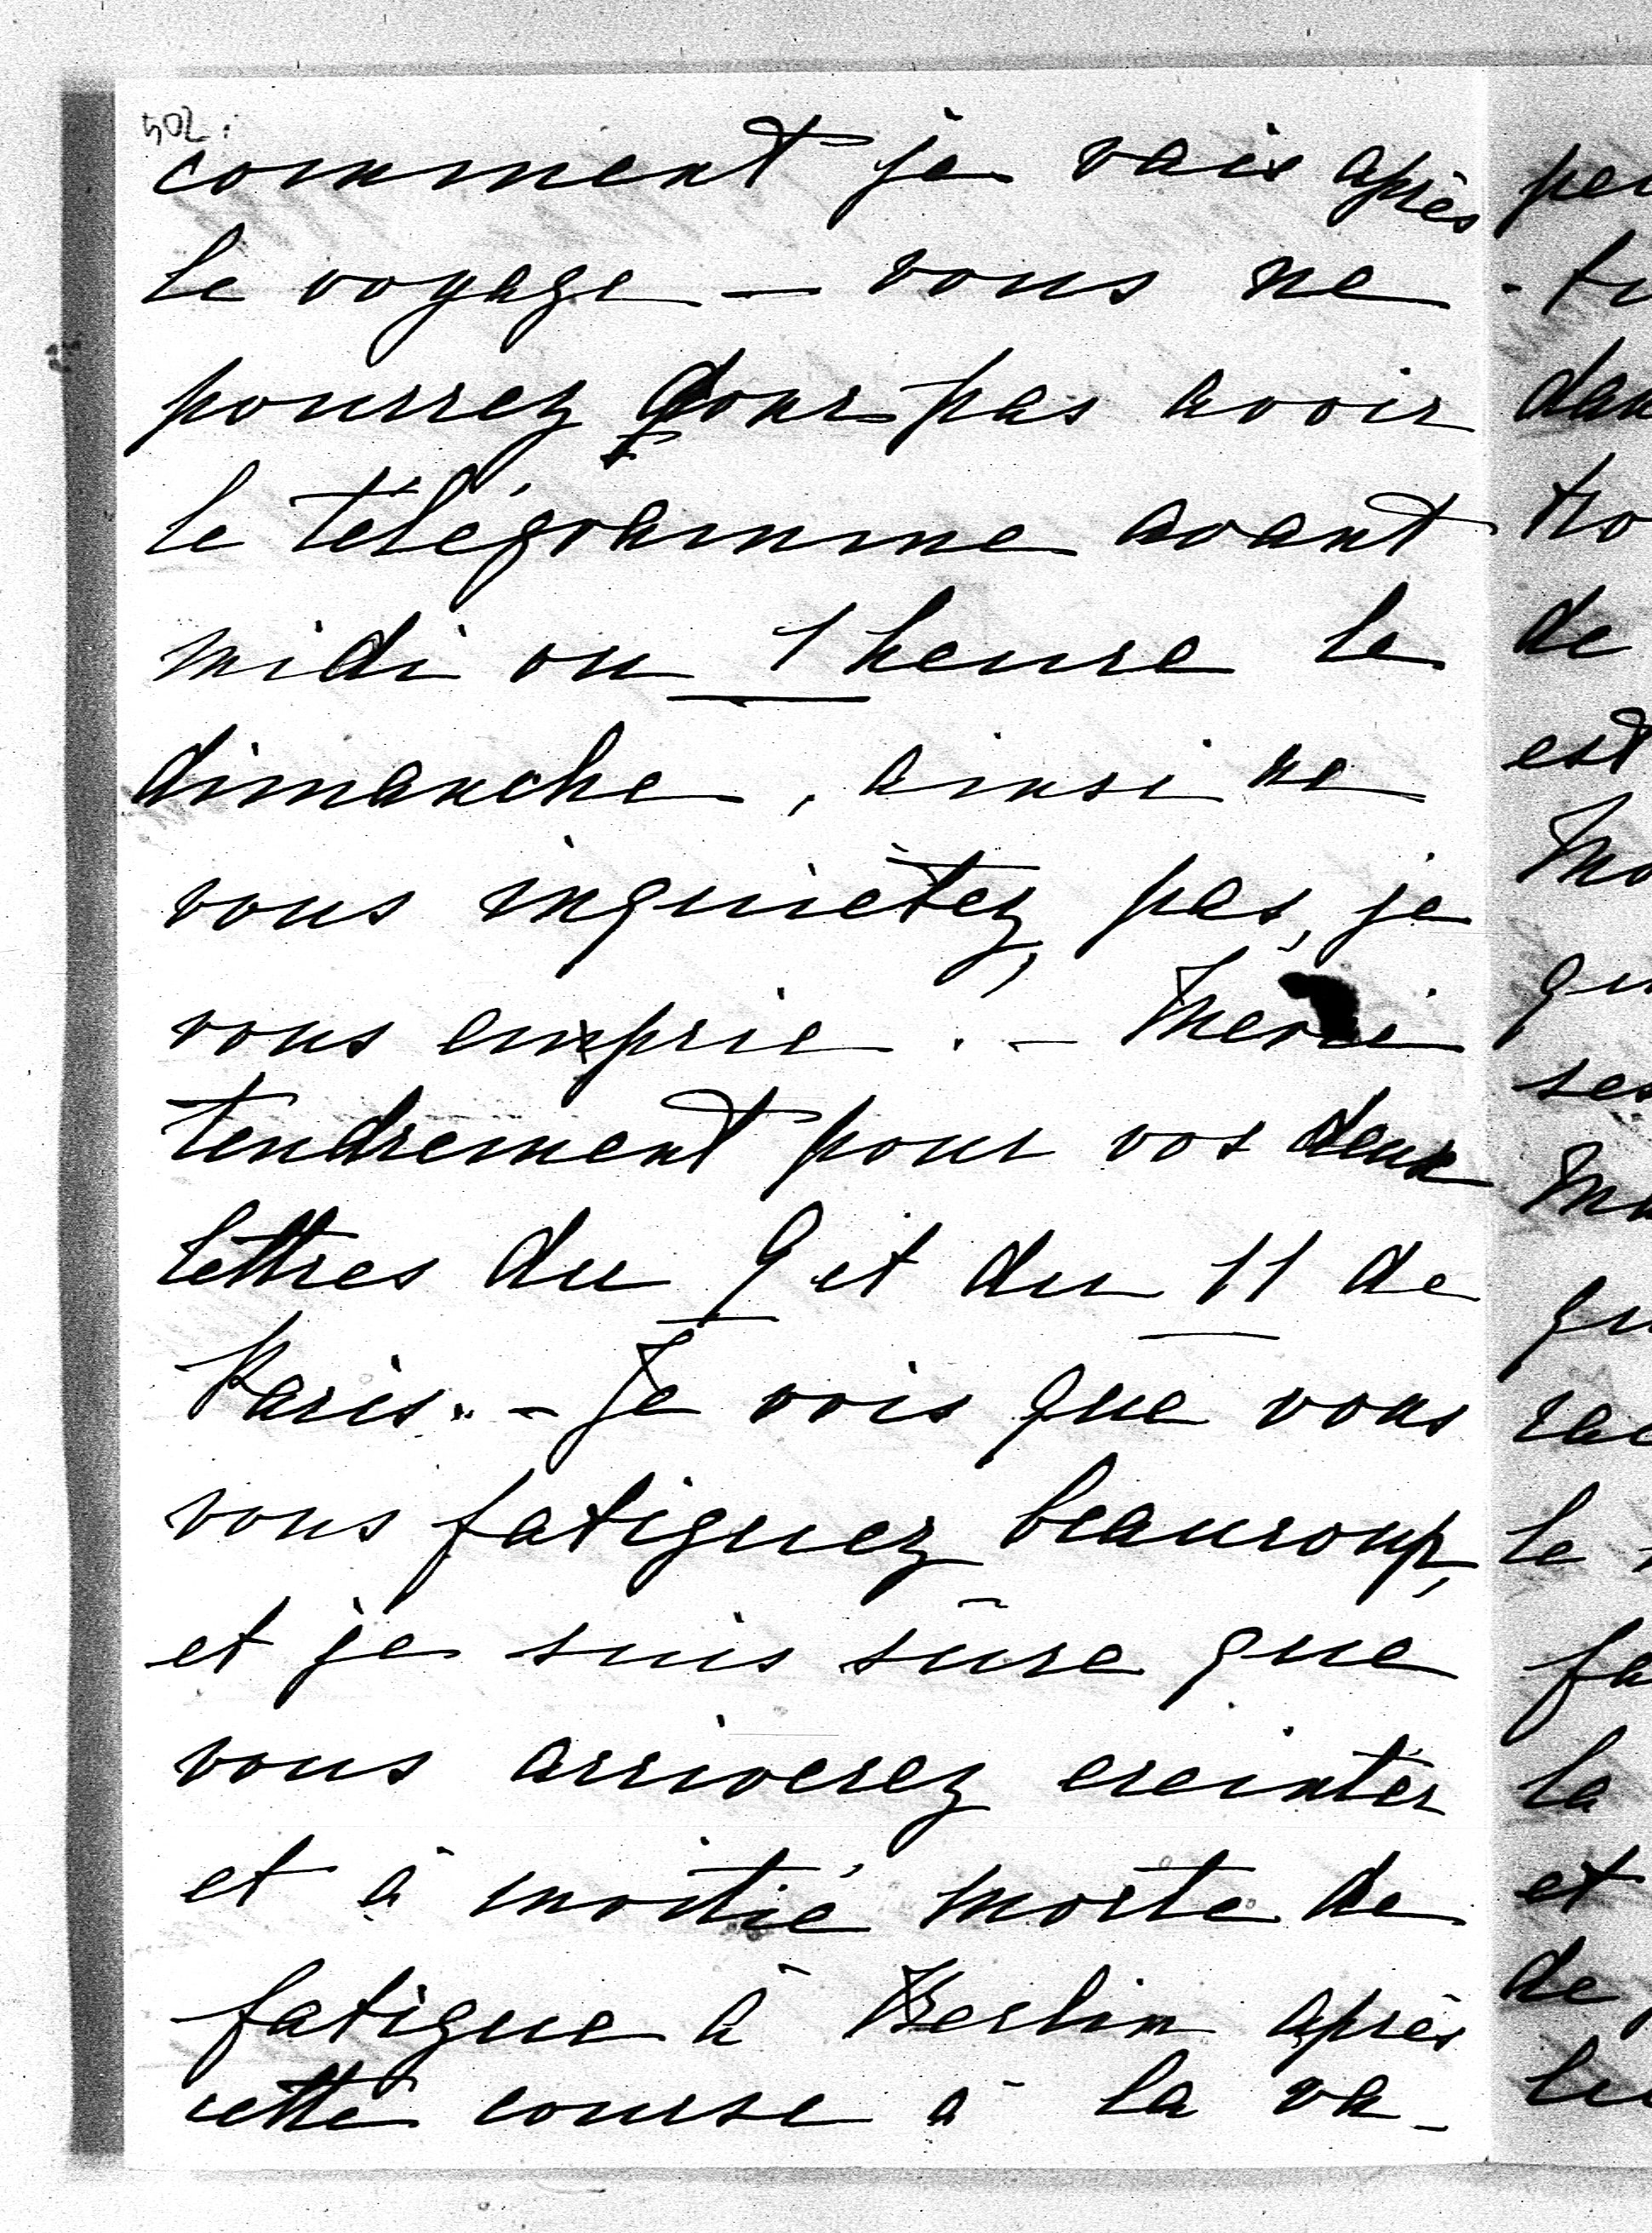 502.
comment je vais après
le voyage — vous ne
pourrez donc pas avoir
le télégramme avant
midi ou 1 heure le
dimanche, ainsi ne
vous inquiètez pas, je
vous en prie. — Merci
tendrement pour vos deux
lettres du 9 et du 11 de
Paris. — Je vois que vous
vous fatiguez beaucoup,
et je suis sûre que
vous arriverez ereintér
et à moitié morte de
fatigue à Berlin après
cette course à la va-
dan
de
est
le
fa
la
et
de